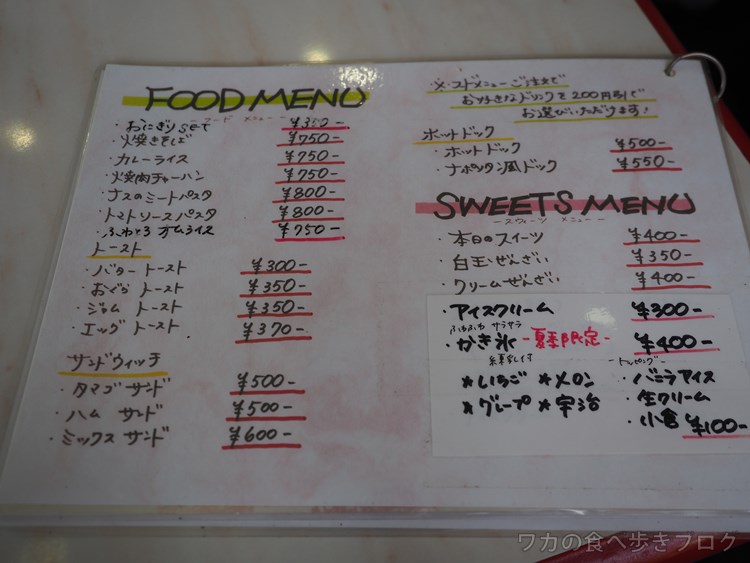 FOOD MENU
- フード メニュー -
・おにぎりset ¥350-
・焼きそば ¥750-
・カレーライス ¥750-
・焼肉チャーハン ¥750-
・ナスのミートパスタ ¥800-
・トマトソースパスタ ¥800-
・ふわとろ オムライス ¥750-
トースト
・バター トースト ¥300-
・おぐら トースト ¥350-
・ジャム トースト ¥350-
・エッグ トースト ¥370-
サンドウィッチ
・タマゴ サンド ¥500-
・ハム サンド ¥500-
・ミックス サンド ¥600-
フードメニューご注文で
お好きなドリンクを200円引で
お選びいただけます!
ホットドック
・ホットドック ¥500-
・ナポリタン風ドック ¥550-
SWEETS MENU
- スウィーツ メニュー -
・本日のスイーツ ¥400-
・白玉ぜんざい ¥350-
・クリームぜんざい ¥400-
・アイスクリーム ¥300-
ふわふわ サラサラ
・かき氷 -夏季限定- ¥400-
練乳付
*いちご *メロン
*グレープ *宇治
-トッピング-
・バニラアイス
・生クリーム
・小倉 ¥100-
ワカの食べ歩きブログ